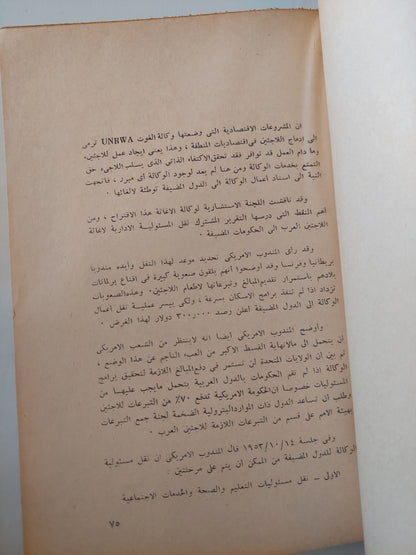 ان المشروعات الاقتصادية التى وضعتها وكالة الغوث UNRWA ترمى
الى ادماج اللاجئين فى اقتصاديات المنطقة ، وهذا يعنى ايجاد عمل للاجئين.
وما دام العمل قد توافر فقد تحقق الاكتفاء الذاتى الذى يسلب اللاجىء حق
التمتع بخدمات الوكالة ومن هنا لم يعد لوجود الوكالة أى مبرر ، فاتجهت
النية الى اسناد أعمال الوكالة الى الدول المضيفة توطئة لالغائها .
وقد ناقشت اللجنة الاستشارية لوكالة الاغاثة هذا الاقتراح ، ومن
أهم النقط التى درسها التقرير المشترك نقل المسئولية الادارية لاغاثة
اللاجئين العرب الى الحكومات المضيفة .
وقد رأى المندوب الامريكى تحديد موعد لهذا النقل وأيده مندوبا
بريطانيا وفرنسا وقد أوضحوا أنهم يلقون صعوبة كبيرة فى اقناع برلمانات
بلادهم باستمرار تقديم المبالغ وتبرعاتها لاطعام اللاجئين. وهذه الصعوبات
تزداد اذا لم تنفذ برامج الاسكان بسرعة ، ولكى ييسر عملية نقل أعمال
الوكالة الى الدول المضيفة أعلن رصد ٣٠٠٫٠٠٠ دولار لهذا الغرض .
وأوضح المندوب الامريكى أيضا انه لا ينتظر من الشعب الامريكى
ان يتحمل الى مالانهاية القسط الاكبر من العبء الناجم عن هذا الوضع .
ثم بين ان الولايات المتحدة لن تستمر فى دفع المبالغ اللازمة لتحقيق برامج
الوكالة اذا لم تقم الحكومات بالدول العربية بتحمل مايجب عليها من
المسئوليات خصوصا ان الحكومة الامريكية تدفع ٧٠٪ من التبرعات للاجئين
وطلب ان تساعد الدول ذات الموارد البترولية الضخمة لجنة جمع التبرعات
بهيئة الامم على قسم من التبرعات اللازمة للاجئين العرب .
وفى جلسة ١٩٥٣/١٠/١٤ قال المندوب الامريكى ان نقل مسئولية
الوكالة للدول المضيفة من الممكن ان يتم على مرحلتين :
الاولى – نقل مسئوليات التعليم والصحة والخدمات الاجتماعية
٧٥